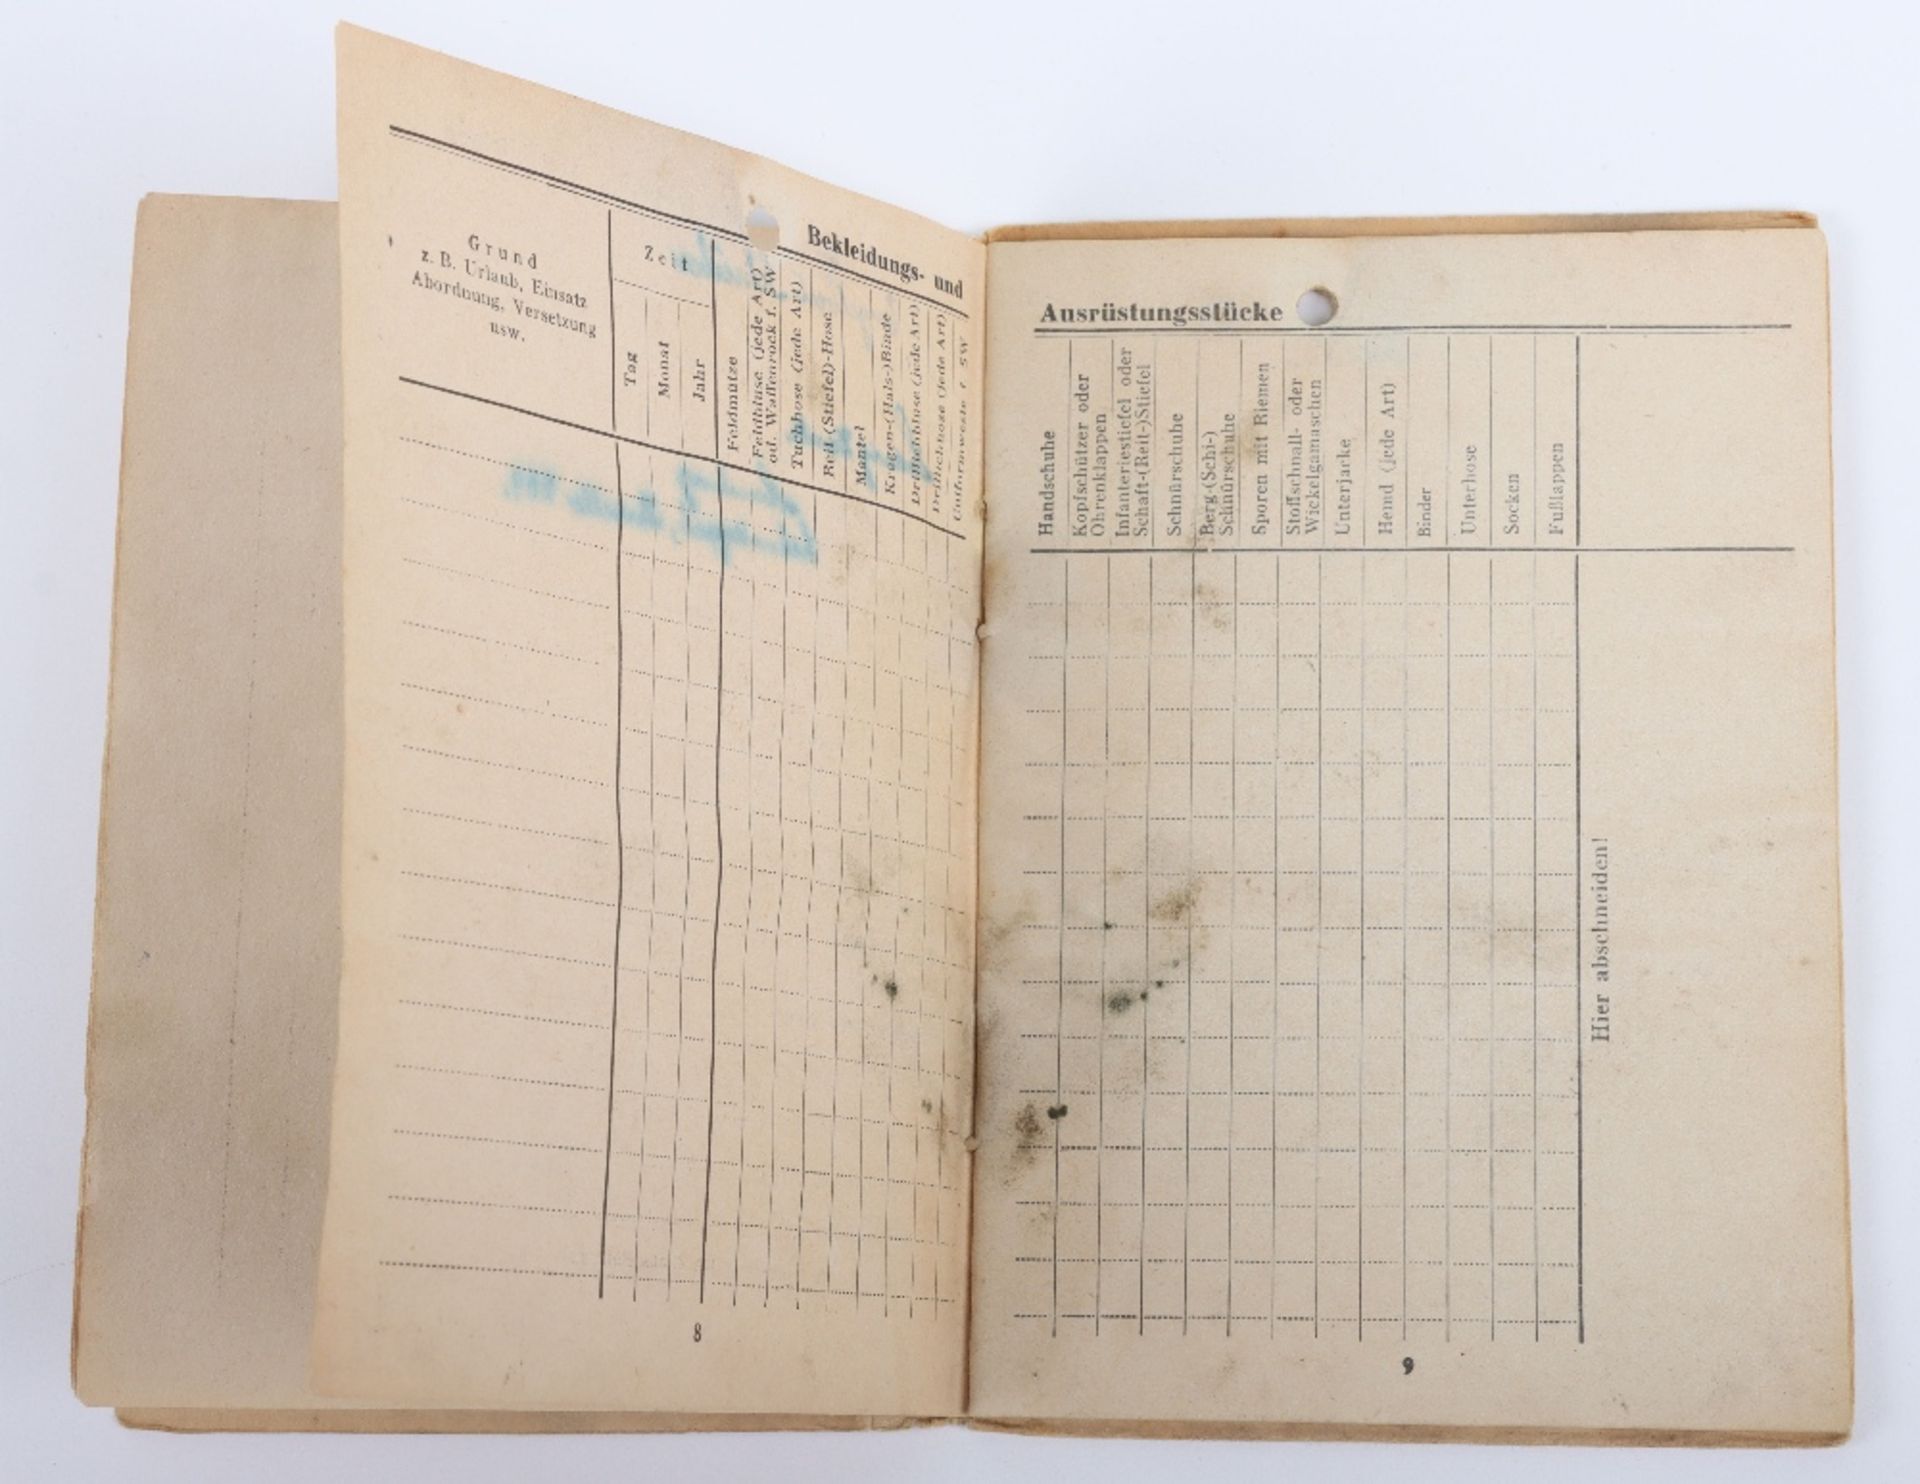 Bekleidungs- und
Grund
z. B. Urlaub, Einsatz
Abordnung, Versetzung
usw.
Zeit
Tag
Monat
Jahr
Feldmütze
Feldbluse (jede Art)
od. Waffenrock f. SW
Tuchhose (jede Art)
Reit-(Stiefel)-Hose
Mantel
Kragen-(Hals-)Binde
Drillichbluse (jede Art)
Drillichhose (jede Art)
Uniformweste f. SW
8
Ausrüstungsstücke
Handschuhe
Kopfschützer oder
Ohrenklappen
Infanteriestiefel oder
Schaft-(Reit-)Stiefel
Schnürschuhe
Berg-(Schi-)
Schnürschuhe
Sporen mit Riemen
Stoffschnall- oder
Wickelgamaschen
Unterjacke
Hemd (jede Art)
Binder
Unterhose
Socken
Fußlappen
Hier abschneiden!
9